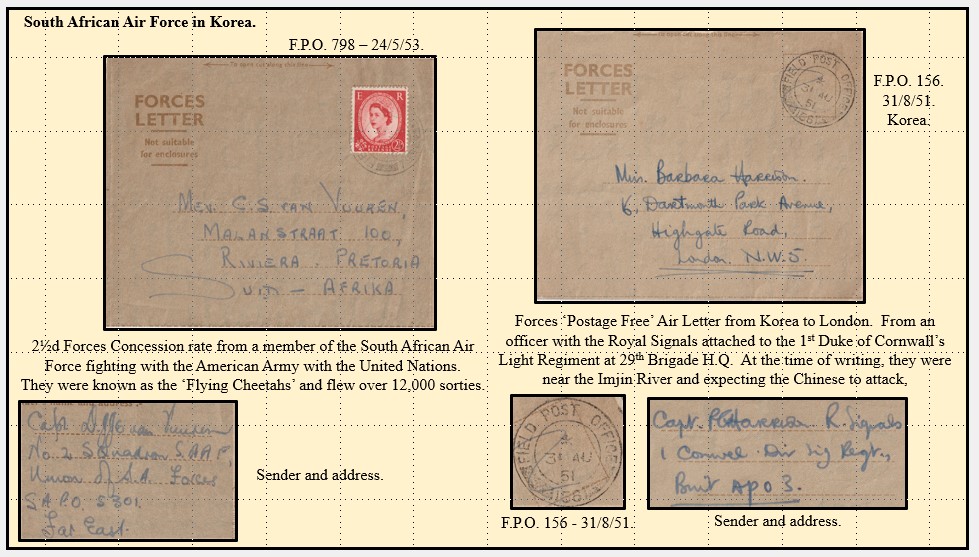 South African Air Force in Korea.
F.P.O. 798 – 24/5/53.
FORCES
LETTER
Not suitable
for enclosures
E R
MEV. C.S. VAN VUUREN,
MALAN STRAAT 100,
RIVIERA. PRETORIA
SUID – AFRIKA
2½d Forces Concession rate from a member of the South African Air
Force fighting with the American Army with the United Nations.
They were known as the ‘Flying Cheetahs’ and flew over 12,000 sorties.
Capt van Vuuren
No. 2 Squadron SAAF,
Union of S.A. Forces
S.A.P.O. 5301.
Far East.
Sender and address.
FORCES
LETTER
Not suitable
for enclosures
FIELD POST OFFICE
31 AU
51
156
F.P.O. 156.
31/8/51.
Korea.
Miss. Barbara Harrison.
6, Dartmouth Park Avenue,
Highgate Road,
London. N.W.5.
Forces ‘Postage Free’ Air Letter from Korea to London. From an
officer with the Royal Signals attached to the 1st Duke of Cornwall’s
Light Regiment at 29th Brigade H.Q. At the time of writing, they were
near the Imjin River and expecting the Chinese to attack,
FIELD POST OFFICE
31 AU
51
156
F.P.O. 156 - 31/8/51.
Capt. Harrison R. Signals
1 Comwel Div Sig Regt.,
Brit APO 3.
Sender and address.